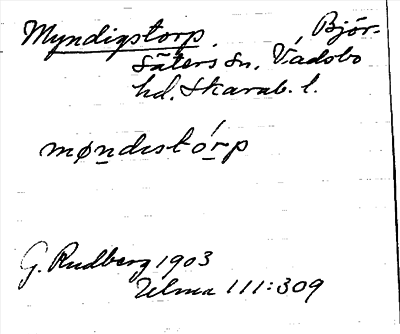 Myndigstorp. Björ-
säters sn, Vadsbo
hd. Skarab. l.
møndɩstórp
G. Rudberg 1903
Ulma 111:309